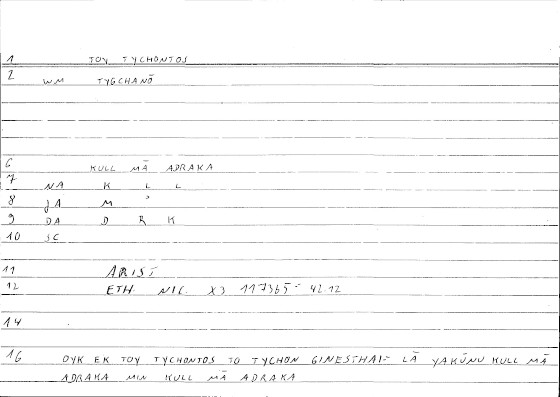 1 TOY TYCHONTOS
2 WM TYGCHANŌ
6 KULL MĀ ADRAKA
7 NA K L L
8 JA M ʾ
9 DA D R K
10 SC
11 ARIST
12 ETH. NIC. X3 1173b5 = 42.12
14
16 OYK EK TOY TYCHONTOS TO TYCHON GINESTHAI = LĀ YAKŪNU KULL MĀ
ADRAKA MIN KULL MĀ ADRAKA